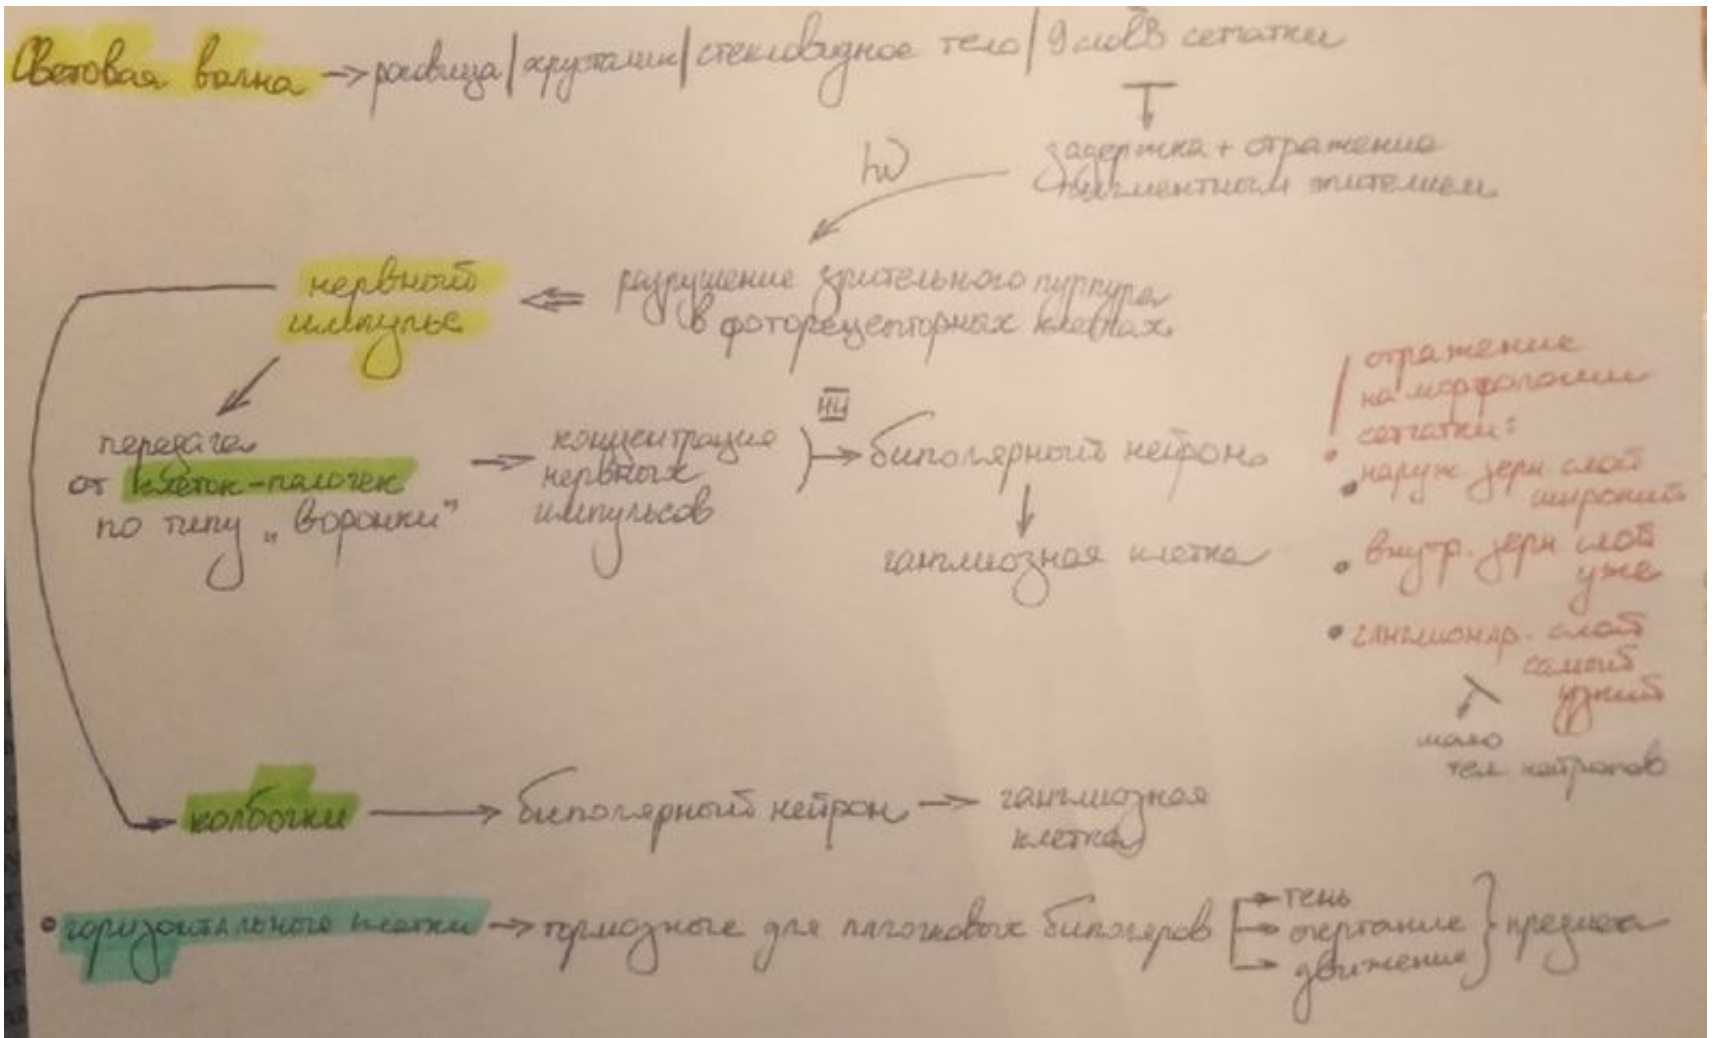 Световая волна → роговица / хрусталик / стекловидное тело / 9 слоёв сетчатки
задержка + отражение
пигментным эпителием
hν
разрушение зрительного пурпура
в фоторецепторных клетках
нервный
импульс
передача
от клеток-палочек
по типу „воронки"
концентрация
нервных
импульсов
НИ
биполярный нейрон
ганглиозная клетка
отражение
на морфологии
сетчатки:
• наруж зерн слой
широкий
• внутр. зерн слой
уже
• ганглионар. слой
самый
узкий
мало
тел нейронов
колбочки → биполярный нейрон → ганглиозная
клетка
• горизонтальные клетки → тормозные для палочковых биполяров
тень
очертание
движение
предмета